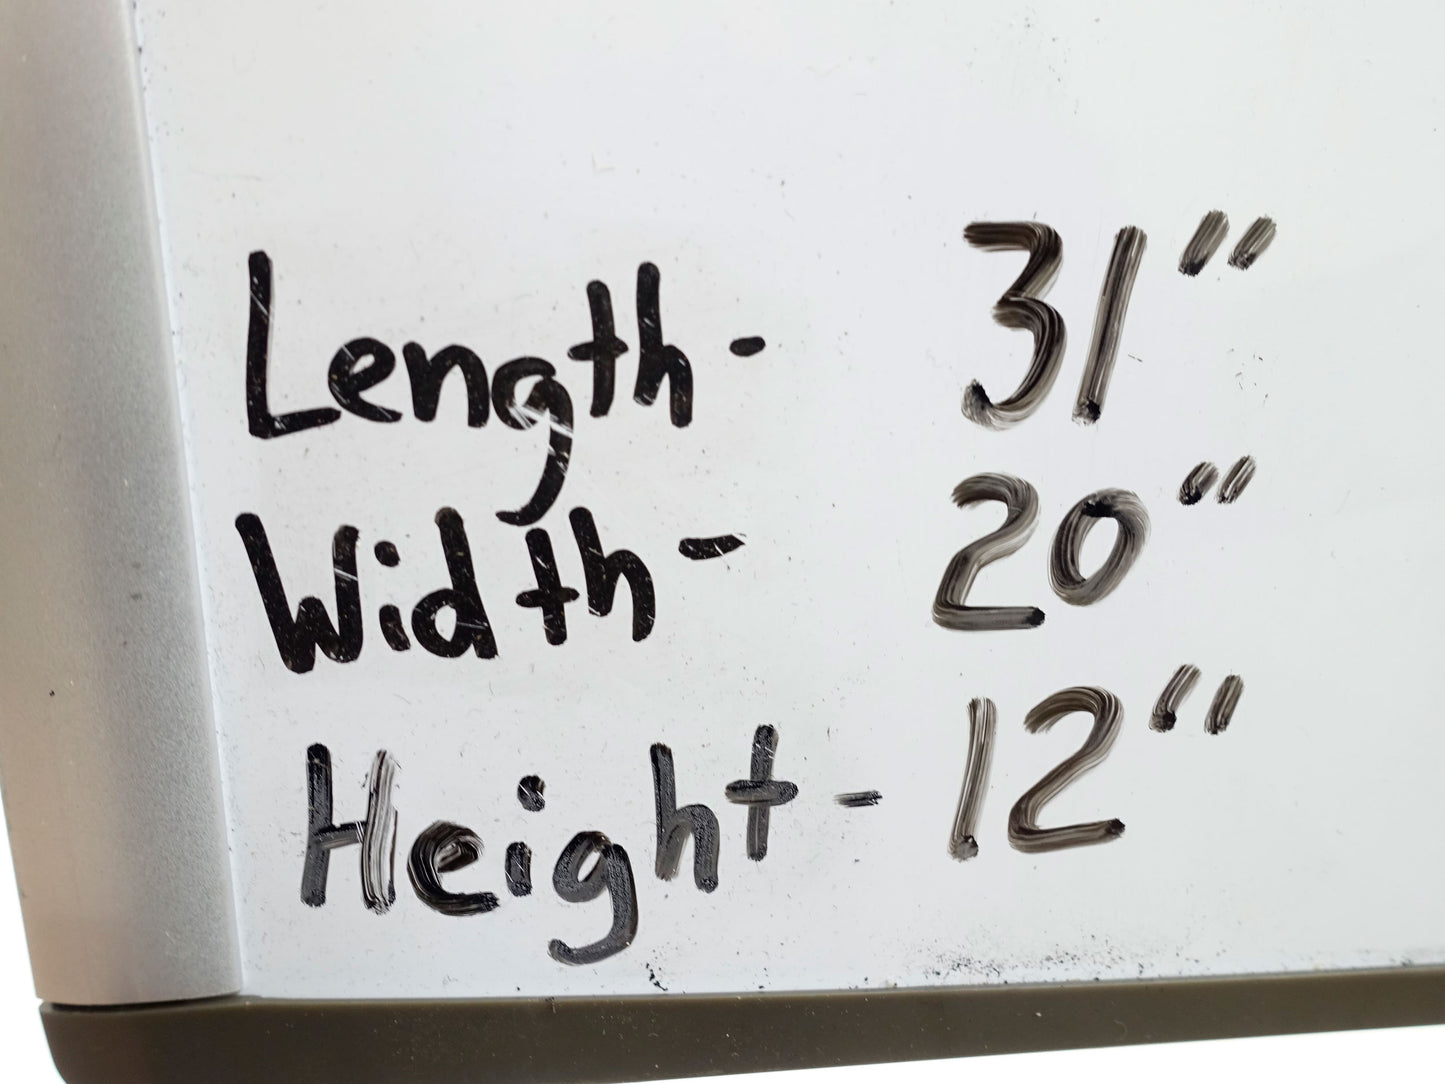 Length- 31"
Width- 20"
Height- 12"